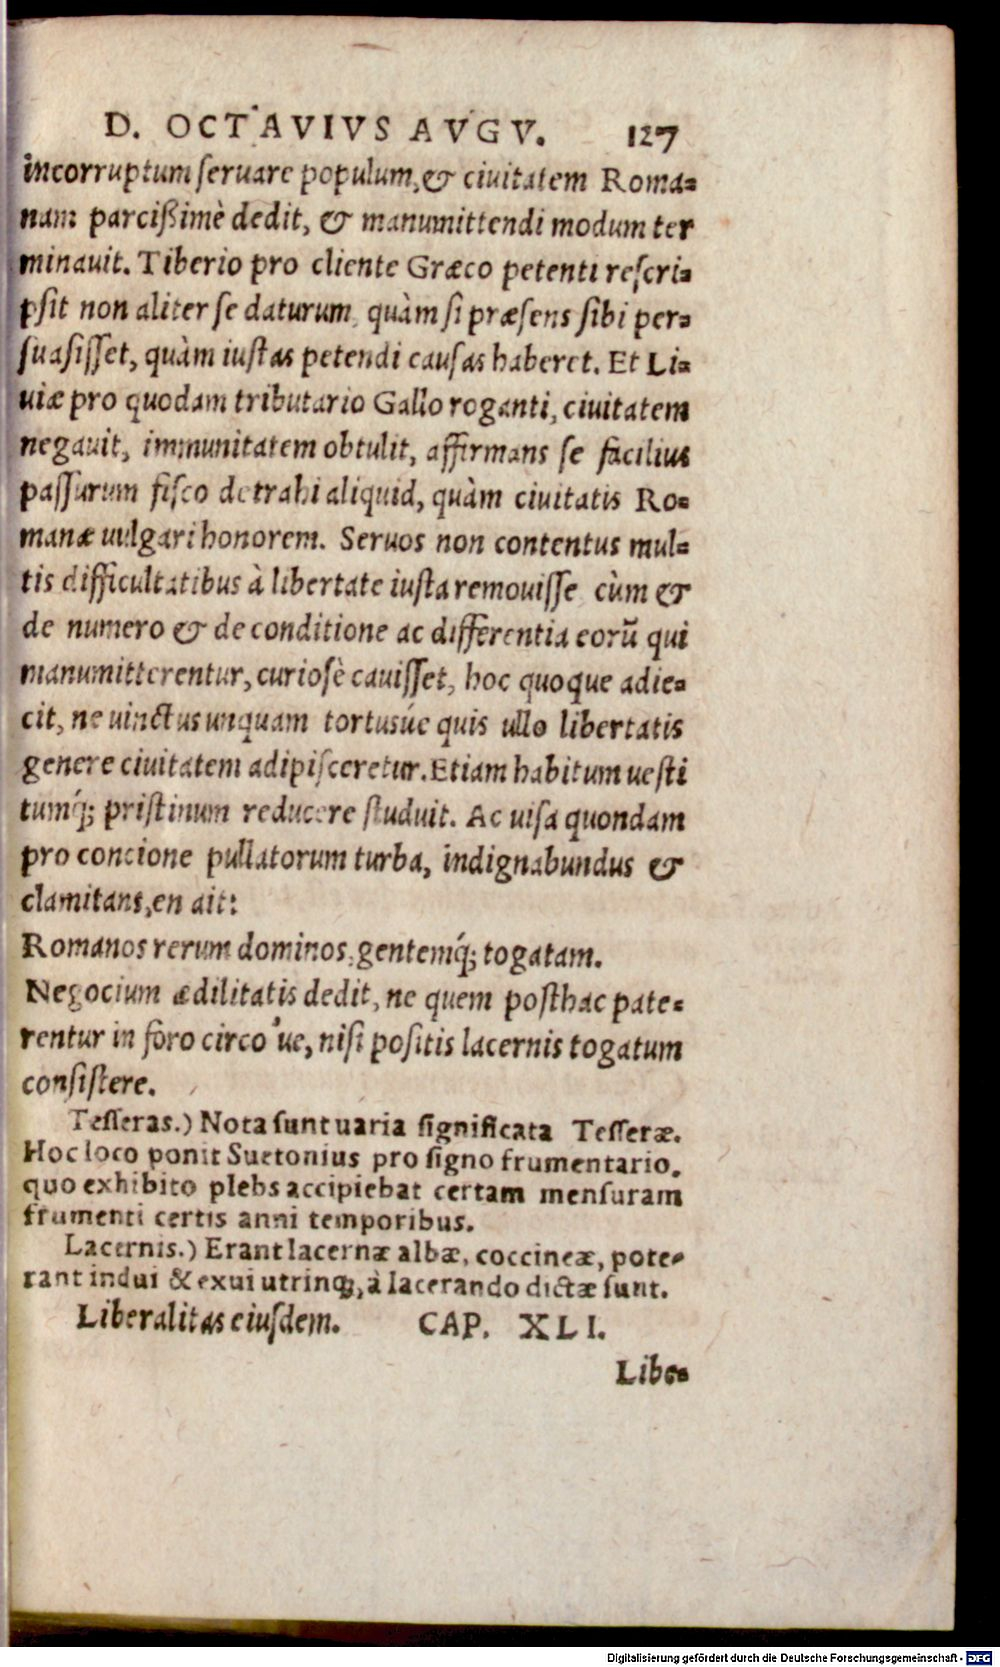 D. OCTAVIVS AVGV. 127
incorruptum seruare populum, & ciuitatem Roma-
nam parcißimè dedit, & manumittendi modum ter
minauit. Tiberio pro cliente Græco petenti rescri-
psit non aliter se daturum, quàm si præsens sibi per-
suasisset, quàm iustas petendi causas haberet. Et Li-
uiæ pro quodam tributario Gallo roganti, ciuitatem
negauit, immunitatem obtulit, affirmans se facilius
passurum fisco detrahi aliquid, quàm ciuitatis Ro-
manæ uulgari honorem. Seruos non contentus mul-
tis difficultatibus à libertate iusta remouisse cùm &
de numero & de conditione ac differentia eorũ qui
manumitterentur, curiosè cauisset, hoc quoque adie-
cit, ne uinctus unquam tortusúe quis ullo libertatis
genere ciuitatem adipisceretur. Etiam habitum uesti
tumq́; pristinum reducere studuit. Ac uisa quondam
pro concione pullatorum turba, indignabundus &
clamitans, en ait:
Romanos rerum dominos, gentemq́; togatam.
Negocium ædilitatis dedit, ne quem posthac pate-
rentur in foro circo'ue, nisi positis lacernis togatum
consistere.
Tesseras.) Nota sunt uaria significata Tesseræ.
Hoc loco ponit Suetonius pro signo frumentario,
quo exhibito plebs accipiebat certam mensuram
frumenti certis anni temporibus.
Lacernis.) Erant lacernæ albæ, coccineæ, pote-
rant indui & exui utrinq;, à lacerando dictæ sunt.
Liberalitas eiusdem. CAP. XLI.
Libe-
Digitalisierung gefördert durch die Deutsche Forschungsgemeinschaft - DFG